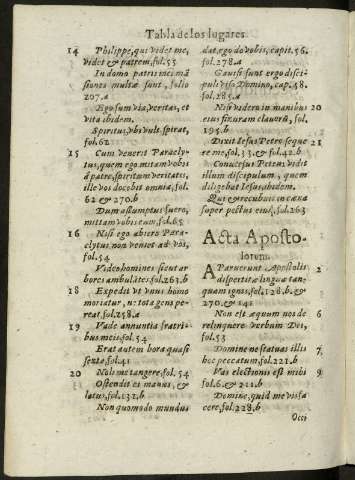 Tabla de los lugares
14 Philippe, qui videt me,
videt & patrem, fol. 53
In domo patris mei mā
siones multæ sunt, folio
207. a
Ego sum via, veritas, et
vita ibidem.
Spiritus, vbi vult, spirat,
fol. 62
15 Cum venerit Paracly
tus, quem ego mitam vobis
â patre, spiritum veritatis,
ille vos docebit omnia, fol.
62 & 270. b
Dum assumptus fuero,
mittam vobis eum, fol. 65
16 Nisi ego abiero Para-
clytus non veniet ad vos,
fol. 54
Video homines sicut ar
bores ambulātes: fol. 263. b
18 Expedit vt vnus homo
moriatur, n: tota gens pe-
reat. fol. 258. a
19 Vade annuntia fratri-
bus meis, fol. 54
Erat autem hora quasi
sexta, fol. 41
20 Noli me tangere, fol. 54
Ostendit eis manus, &
latus, fol. 131. b
Non quomodo mundus
dat, ego do vobis, capit. 56.
fol. 278. a
Gauisi sunt ergo disci-
puli viso Domino, cap. 58.
fol. 285. a
Nisi videro in manibus 20
eius fixuram clavorū, fol.
195. b
Dixit Iesus Petro seque 21
re me, fol. 33. & fol. 42. b
Conuersus Petrus vidit
illum discipulum, quem
diligebat Iesus, ibidem.
Qui & recubuit in cæna
super pectus eius, fol. 263
Acta Aposto-
lorum.
APparuerunt Apostolis 2
dispertitæ linguæ tan-
quam ignis, fol. 128. b. &
270. & 141
Non est æquum nos de 6
relinquere verbum Dei,
fol. 53
Domine ne statuas illis 7
hoc peccatum, fol. 221. b
Vas electionis est mihi 9
fol. 6. & 211. b
Domine, quid me vis fa
cere, fol. 228. b
Occi